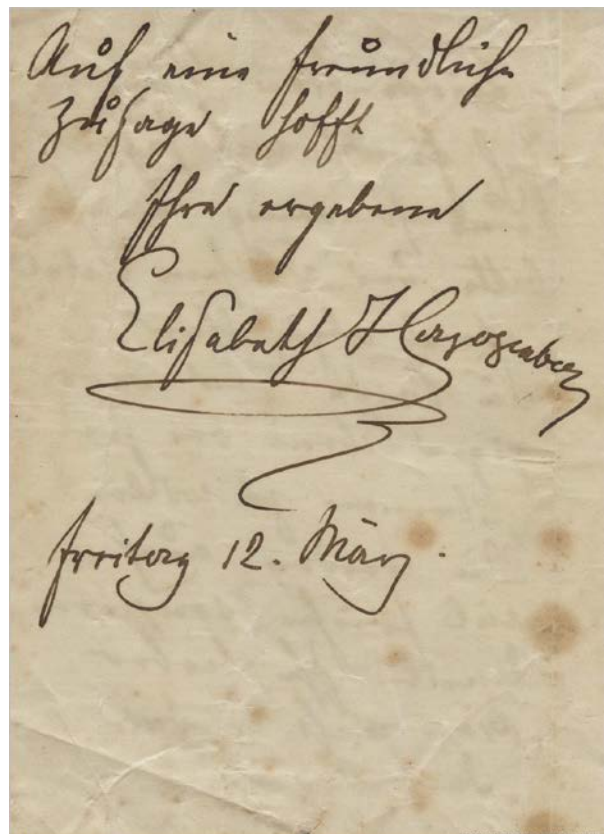 Auf eine freundliche
Zusage hofft
Ihre ergebene
Elisabeth Herzogenberg
Freitag 12. März.